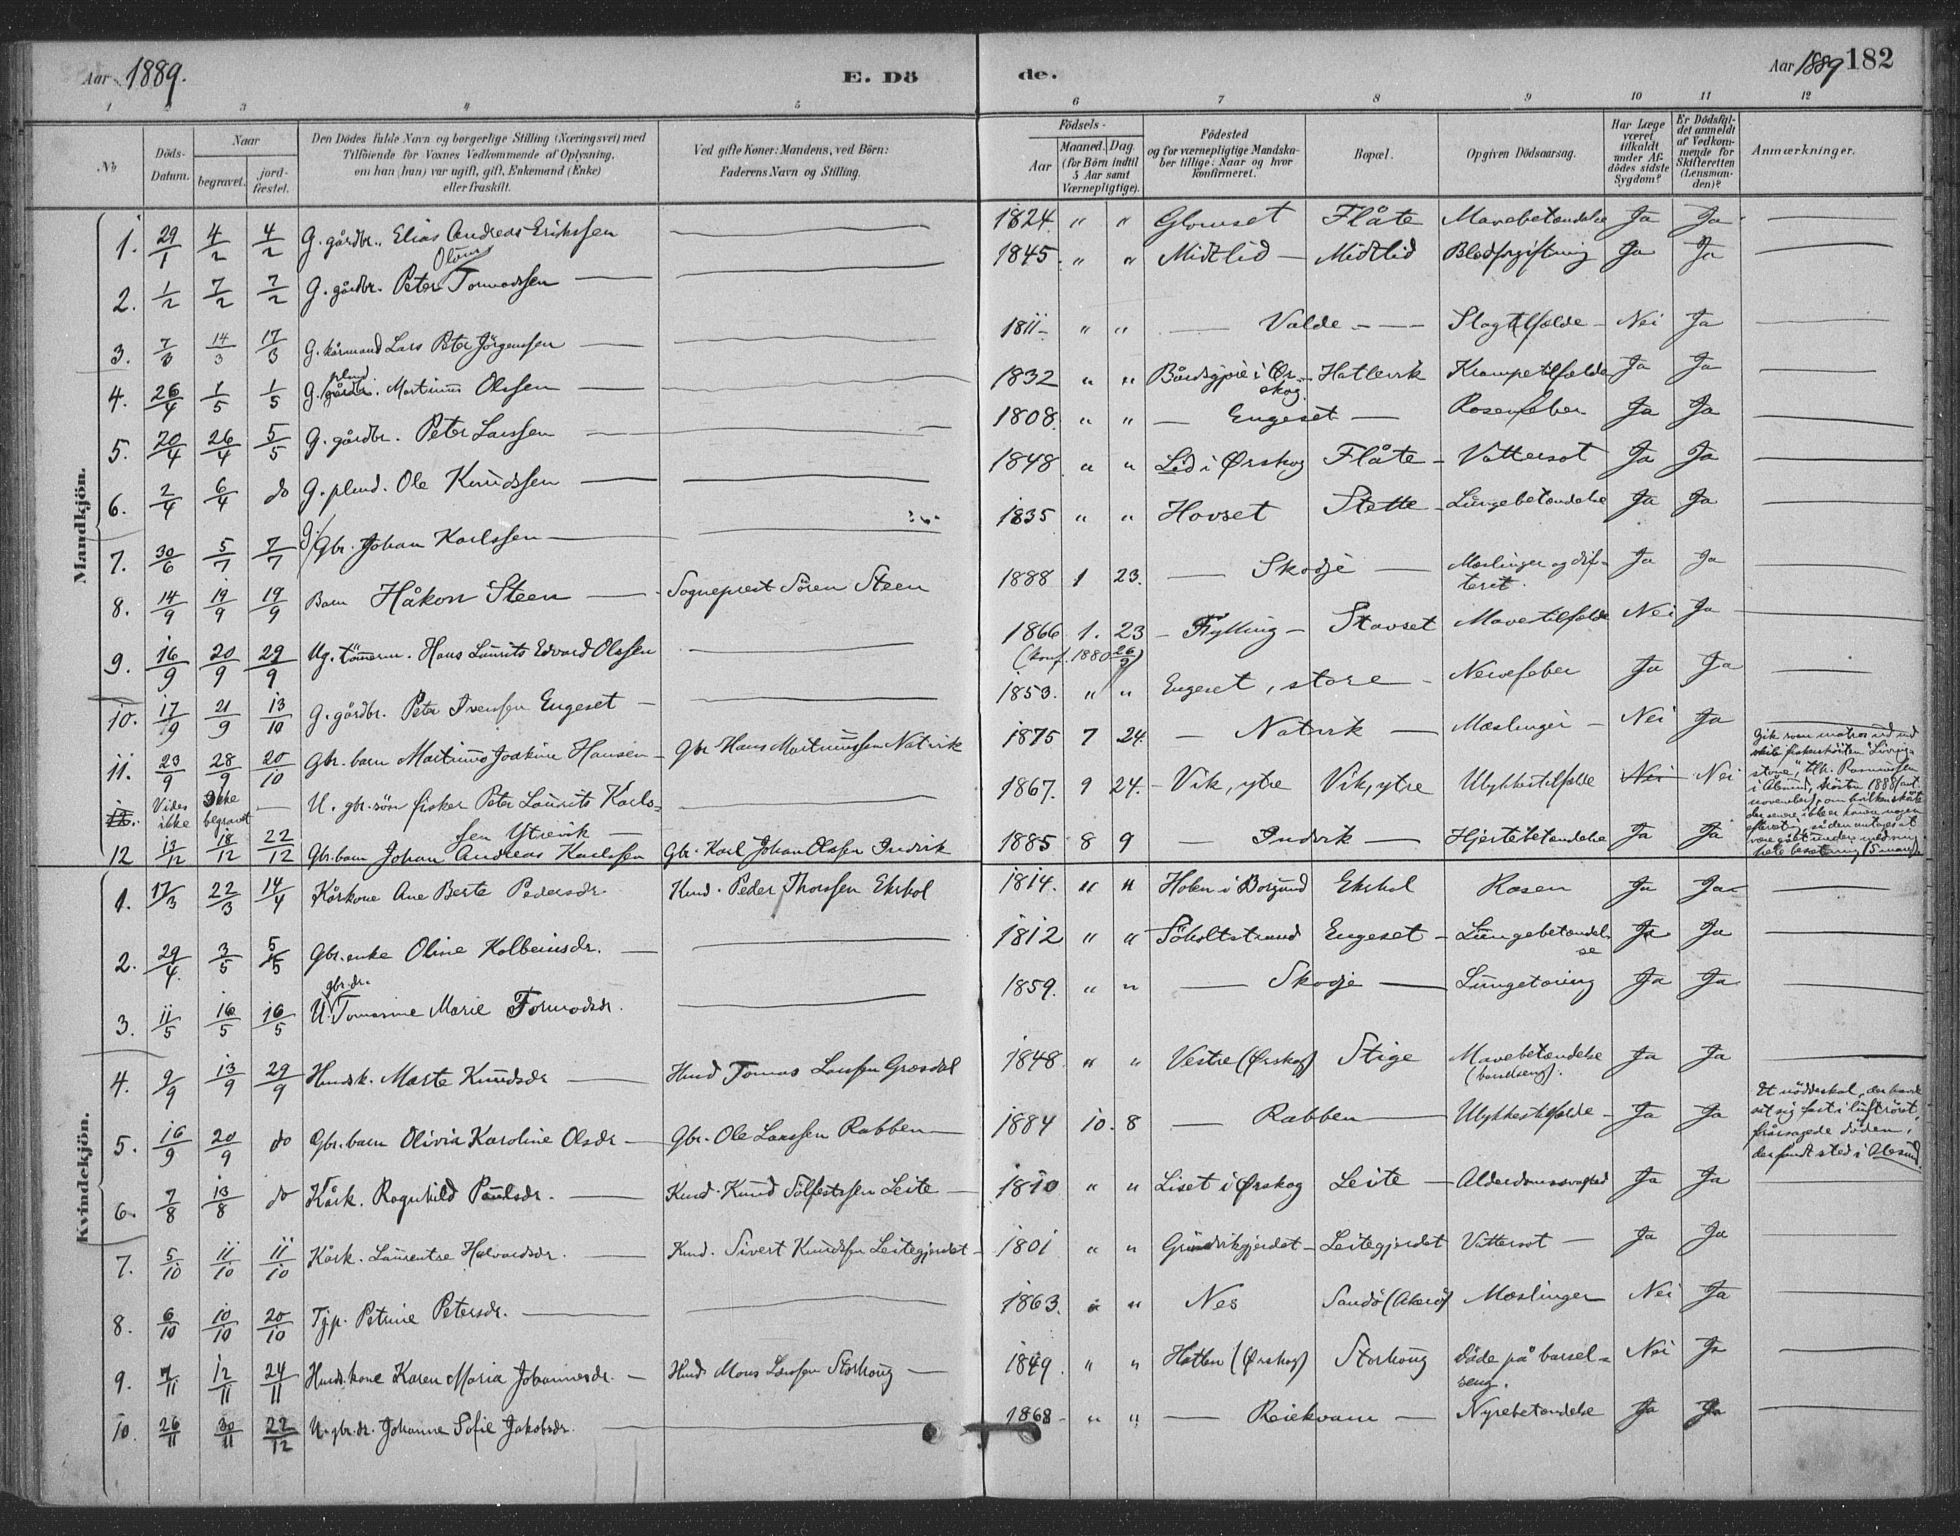 Aar 1889. E. Dö de. Aar 1889 182
1 2 3 4 5 6 7 8 9 10 11 12
No
Döds-Datum.
Naar
begravet.
jord-fæstet.
Den Dödes fulde Navn og borgerlige Stilling (Næringsvei) med
Tilföiende for Voxnes Vedkommende af Oplysning,
om han (hun) var ugift, gift, Enkemand (Enke)
eller fraskilt.
Ved gifte Koner: Mandens, ved Börn:
Faderens Navn og Stilling.
Födsels-
Aar
Maaned. Dag
(for Börn indtil
5 Aar samt
Værnepligtige).
Födested
og for værnepligtige Mandska-
ber tillige: Naar og hvor
konfirmeret.
Bopæl.
Opgiven Dödsaarsag.
Har Læge
været
tilkaldt
under Af-
dödes sidste
Sygdom?
Er Dödsfal-
det anmeldt
af Vedkom-
mende for
Skifteretten
(Lensman-
den)?
Anmærkninger.
Mandkjön.
1. 29/1 4/2 4/2 G. gårdbr. Elias Andreas Erikssen 1824. " " Glomset Flåte Mavebetændelse Ja Ja
Olaus
2. 1/2 7/2 7/2 G. gårdbr. Peter Tormodssen 1845. " " Midtlid Midtlid Blodforgiftning Ja Ja
3. 7/3 14/3 17/3 G. kårmand Lars Peter Jörgenssen 1811 " " Valde Slagtilfælde Nei Ja
plmd
4. 26/4 1/5 1/5 G. gårdbr. Martinus Olssen 1832 " " Bårdsgjære i Ør-
skog. Hatlevik Krampetilfælde Ja Ja
5. 20/4 26/4 5/5 G. gårdbr. Peter Larssen 1808. " " Engeset Rosenfeber Ja Ja
6. 2/4 6/4 do G. plmd. Ole Knudssen 1848 " " Lid i Ørskog Flåte Vattersot Ja Ja
7. 30/6 5/7 7/7 G. Gbr. Johan Karlssen 1835 " " Hovset Stette Lungebetændelse Ja Ja
8. 14/9 19/9 19/9 Barn Håkon Steen Sogneprest Sören Steen 1888 1 23. Skodje Mæslinger og dif-
terit. Ja Ja
9. 16/9 20/9 29/9 Ug. tömerm. Hans Laurits Edvard Olssen 1866 1. 23 Fylling Stavset Mavetilfælde Nei Ja
(konf. 1880 26/9)
10. 17/9 21/9 13/10 G. gårdbr. Peter Iverssen Engeset 1853. " " Engeset, store Nervefeber Ja Ja
11. 23/9 28/9 20/10 Gbr. barn Martinus Joakim Hansen Gbr. Hans Martinussen Natvik 1875 7 24. Natvik Mæslinger Nei Ja
12. Vides ikke Ikke begravet U. gbr. sön fisker Peter Laurits Karls-
sen Ytrevik 1867. 9 24. Vik, ytre Vik, ytre Ulykkestilfælde Nei Nei
Gik som matros ud med
12 13/12 18/12 22/12 Gbr. barn Johan Andreas Karlssen Gbr. Karl Johan Olssen Indvik 1885 8 9 Indvik Hjertebetændelse Ja Ja
Kvindekjön.
1. 17/3 22/3 14/4 Kårkone Ane Berte Pedersdr. Kmd. Peder Thorssen Ekrhol 1814. " " Holen i Borgund Ekrhol Rosen Ja Ja
2. 29/4. 3/5 5/5 Gbr. enke Oline Kolbeinsdr. 1812 " " Søholtstrand Engeset Lungebetændel-
se Ja Ja
gbr. dr.
3. 11/5 16/5 16/5 U. Tomasine Marie Tormodsdr. 1859. " " Skodje Lungetæring Ja Ja
4. 9/9 13/9 29/9 Husdsk. Marte Knudsdr Husd Tomas Larssen Græsdal 1848. " " Vestre (Ørskog) Stige Mavebetændelse
(barselseng). Ja Ja
5. 16/9 20/9 do Gbr. barn Olivia Karoline Olsdr Gbr. Ole Larssen Rabben 1884 10. 8 Rabben Ulykkestilfælde Ja Ja
Et nöddeskal, der havde
sat sig fast i luftröret,
forårsagede döden,
der fandt sted i Ålesund.
6. 7/8 13/8 do Kårk. Ragnhild Paulsdr. Kmd. Knud Sölfestssen Leite 1810 " " Liset i Ørskog Leite Alderdomssvaghed Ja Ja
7. 5/10 11/10 11/10 Kårk. Laurentse Halvardsdr. Kmd. Sivert Knudssen Leitegjerdet 1801 " " Leitegjerdet Vattersot Ja Ja
8. 6/10 10/10 20/10 Tjp. Petrine Petersdr. 1863. " " Nes Sandö (Akerö) Mæslinger Nei Ja
9. 7/11 12/11 24/11 Husdskone Karen Maria Johannesdr. Husd Mons Larssen Storhoug 1849. " " Hatlen (Ørskog) Storhoug Döde på barsel-
seng. Nei Ja
10. 26/11 30/11 22/12 U. gbr. dr. Johanne Sofie Jakobsdr. 1868 " " Reiekvam Nyrebetændelse Ja Ja